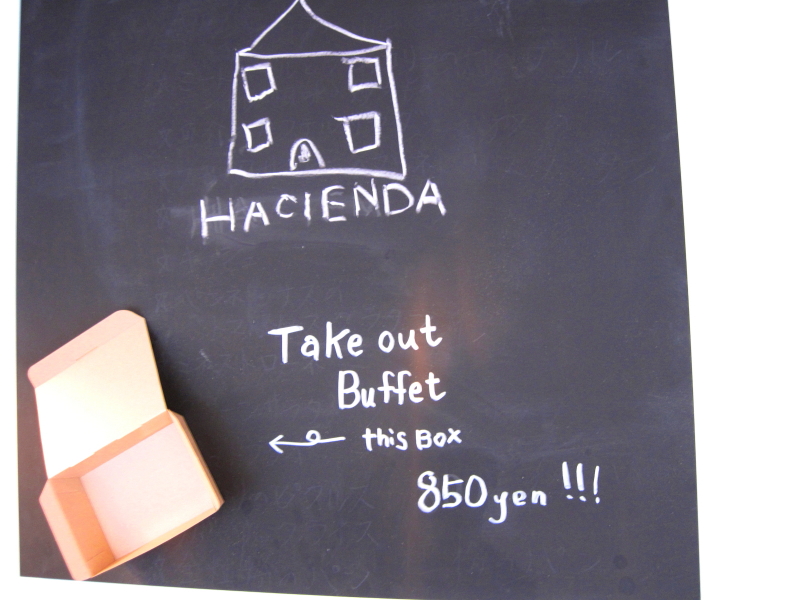 HACIENDA
Take out
Buffet
this Box
850 yen !!!